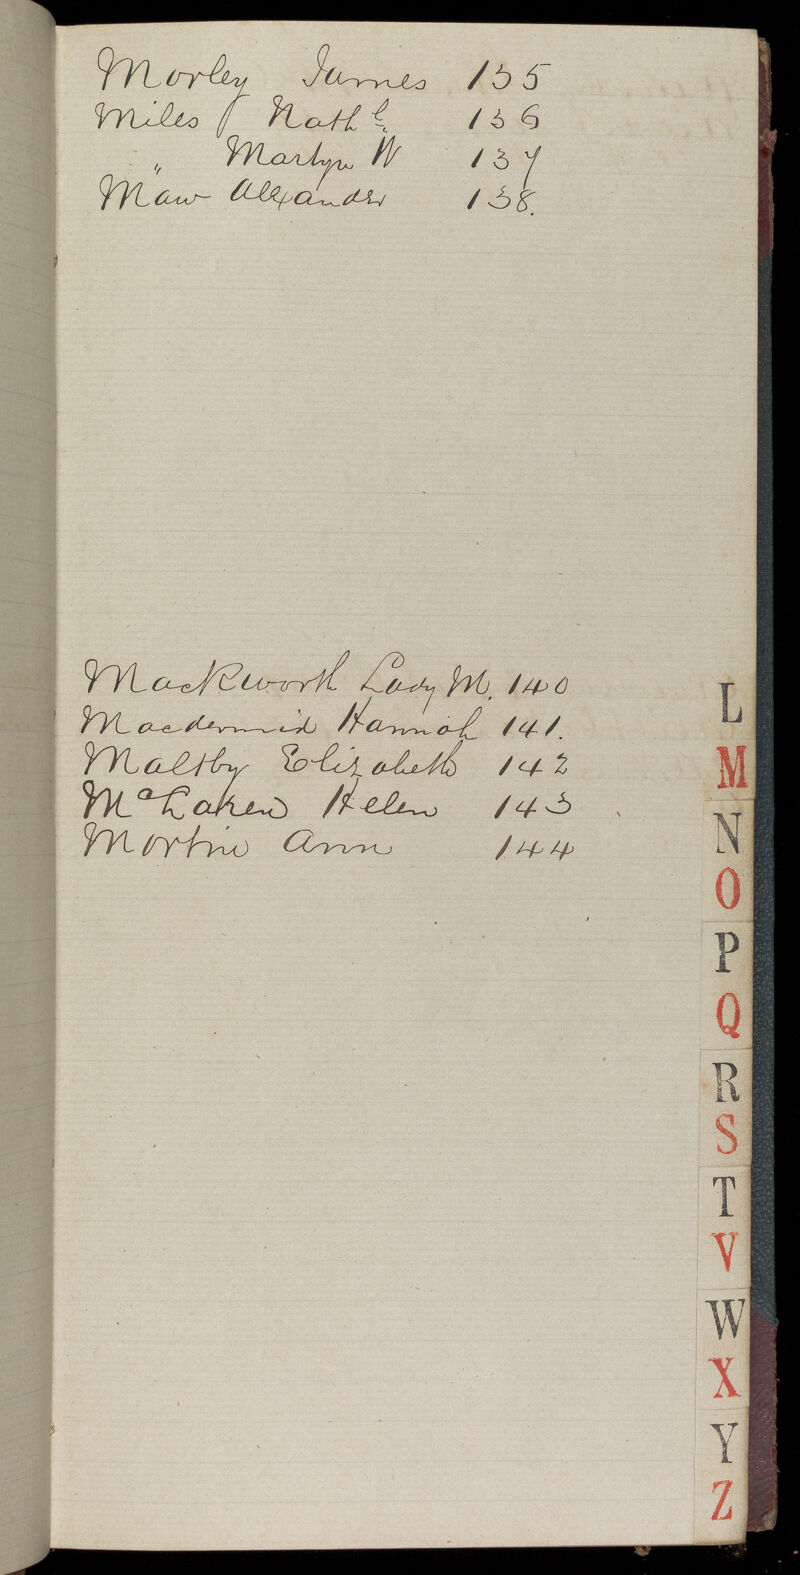 Morley James 135
Miles Nathl. 136
" Martyn W 137
Maw Alexander 138.
Mackworth Lady M. 140
Macdermid Hannah 141.
Maltby Elizabeth 142
McLaren Helen 143
Mortin Ann 144
L
M
N
O
P
Q
R
S
T
V
W
X
Y
Z